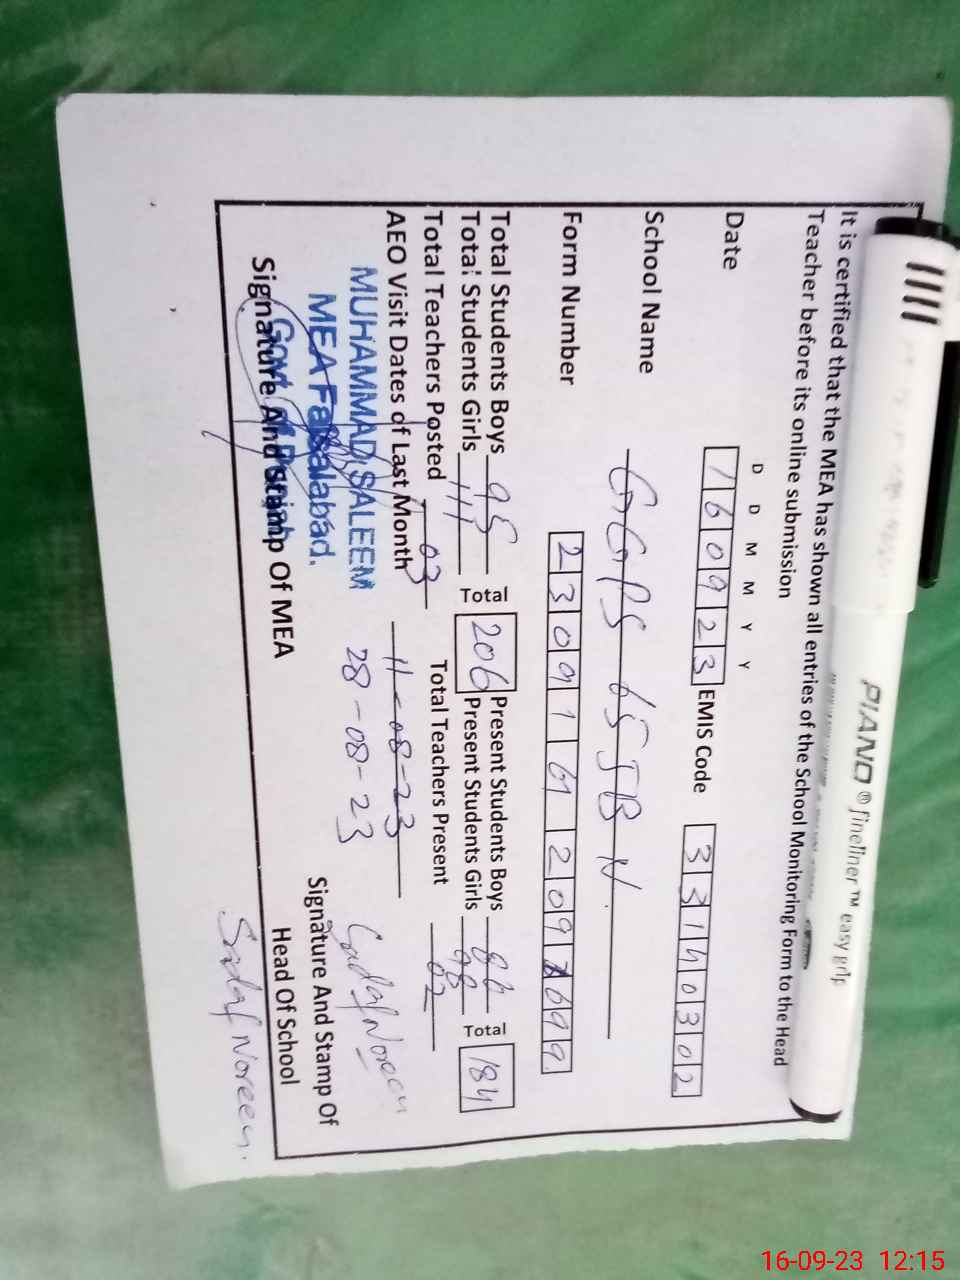 PIANO ® fineliner ™ easy grip
It is certified that the MEA has shown all entries of the School Monitoring Form to the Head
Teacher before its online submission
D D M M Y Y
Date 160923 EMIS Code 33140302
School Name GGPS 65 JB N.
Form Number
Total Students Boys 95 Total 206 Present Students Boys 86 Total 184
Total Students Girls 111 Present Students Girls 98
Total Teachers Posted 03 Total Teachers Present 02
AEO Visit Dates of Last Month 11-08-23
28-08-23
MUHAMMAD SALEEM
MEA Faisalabad.
Govt. of Punjab
Signature And Stamp Of MEA
Sadaf Noreen
Signature And Stamp Of
Head Of School
Sadaf Noreen.
16-09-23 12:15